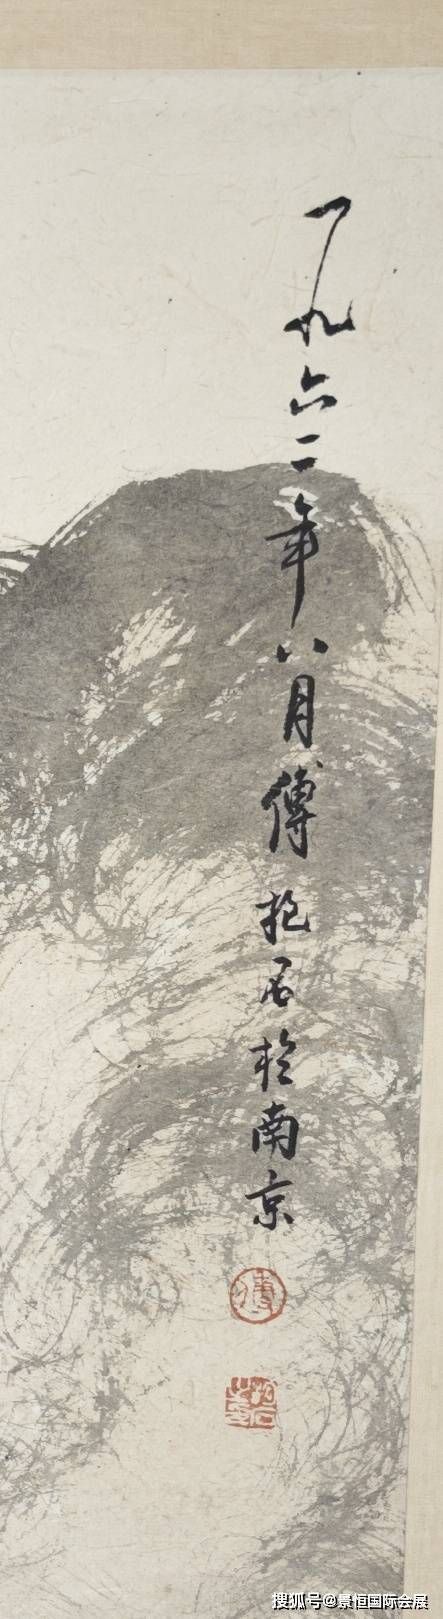 一九六二年八月傅抱石於南京
傅
搜狐号@景恒国际会展